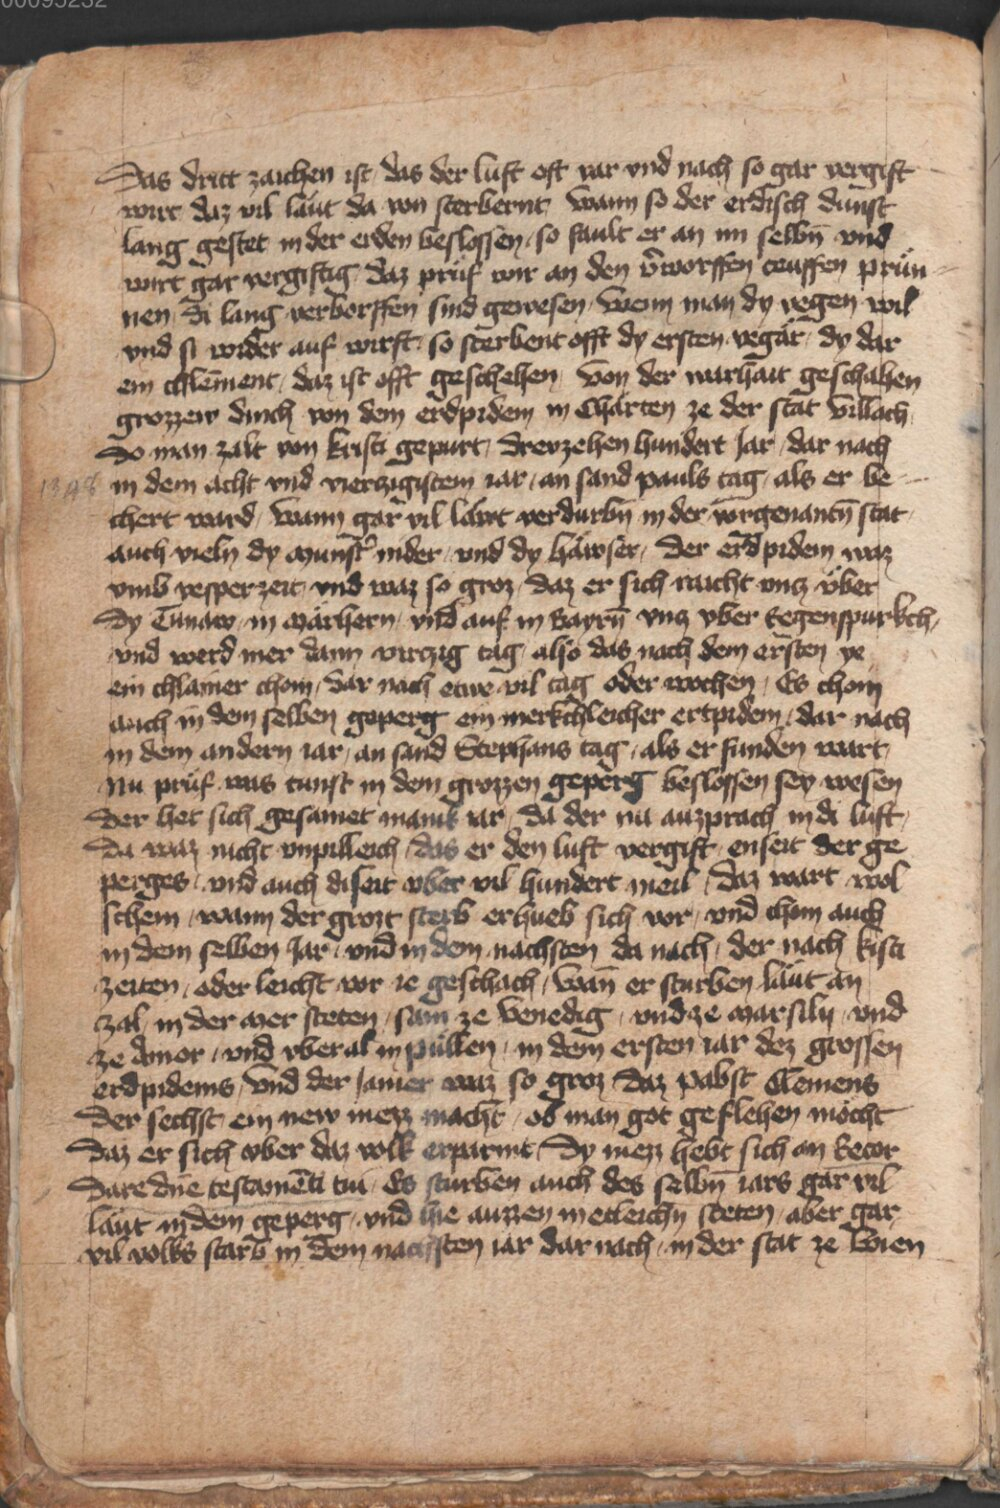 00095232
Das dritt zaichen ist das der luft oft var vnd nach so gar vergift
wirt daz vil läut da von sterbernt wann so der erdisch dunst
lang gestet in der erden beslossen so fault er an im selbn̄ vnd
wirt gar vergiftig daz prüf wir an den v̄worffen teuffen prün
nen di lang verborffen sind gewesen wenn man dy vegen wil
vnd si wider auf wirft so sterbent offt dy ersten vegär dy dar
ein chlēment daz ist offt geschehen von der warhait geschahen
grozzew dinch von dem erdpidem in Chärten ze der stat villach
do man zalt von kristi gepurt drevzehen hundert Jar dar nach
1348 in dem acht vnd vierczigistem iar an sand pauls tag als er be
chert ward wann gar vil läwt verdurbn̄ in der vorgenantn̄ stat
auch vieln dy munst͛ nider vnd dy häwser der erdpidem waz
vmb vesperzeit vnd waz so groz daz er sich raicht vncz über
dy Tunaw in märhern vnd auf in Bayrn̄ vncz vber Regenspurkch
vnd werd mer dann virczig tag also das nach dem ersten ye
ein chlainer chom dar nach etwe vil tag oder wochen Es chom
auch in dem selben geperg ein merkchleicher ertpidem dar nach
in dem andern iar an sand Stephans tag als er funden wart
Nu prüf was tunst in dem grozzen geperg beslossen sey wesen
der het sich gesamet manik iar da der nu auzprach in di luft
da waz nicht vnpilleich das er den luft vergift enseit der ge
perges vnd auch diseit vber vil hundert meil daz wart wol
schein wann der grozt sterb erhueb sich vor vnd chom auch
in dem selben Jar vnd in dem nachsten da nach der nach kristi
zeiten oder leicht vor ie geschach wan̄ er sturben läut an
zal in der mer steten sam ze venedig vnd ze marsilij vnd
ze vnd vberal in püllen in dem ersten iar dez grossen
erdpidems vnd der Jamer waz so groz daz pabst Clemens
der sechst ein new mezz macht ob man got geflehen möcht
daz er sich vber daz volk erparmt dy mezz hebt sich an Recor
dare dn̄e testamēti tui Es sturben auch des selbn̄ iars gar vil
läut in dem geperg vnd hie auzzen in etleichn̄ steten aber gar
vil volks starb in dem nachsten iar dar nach in der stat ze Wien